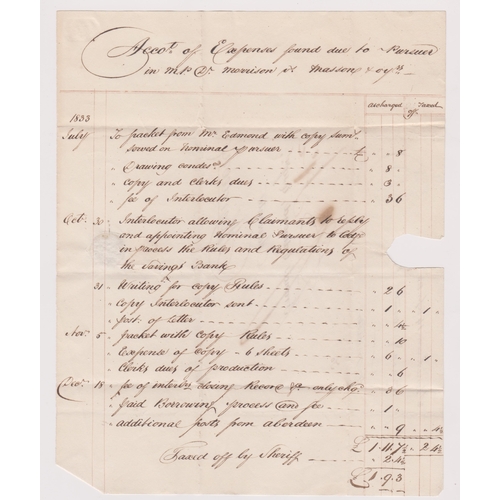 Accot. of Expenses found due to Pursuer
in M.P. Dr. Morrison & Masson & ors.
as charged Off Taxed
1833
July To packet from Mr Edmond with copy Sums.
served on Nominal Pursuer " 8
Drawing condes. " 8 "
copy and Clerks dues " 3 "
fee of Interlocutor " 3 6
Oct. 30 Interlocutor allowing Claimants to
and appointing Nominal Pursuer to lodge
in process the Rules and Regulations of
the Savings Bank
31 Writing for copy Rules " 2 6
Copy Interlocutor sent " 1 " " 1 "
post. of letter
Nov. 5 Packet with Copy Rules " " 10
Expense of Copy 6 Sheets " 6 " " 1 "
Clerks dues of production " " 6
Decr. 18 fee of interlr. closing Record &c only chgd. " 3 6
Paid Borrowing process and fee " 1 "
additional posts from aberdeen " " 9 " " 4½
£ 1 11 7½ " 2 4½
Taxed off by Sheriff " 2 4½
£ 1 9 3